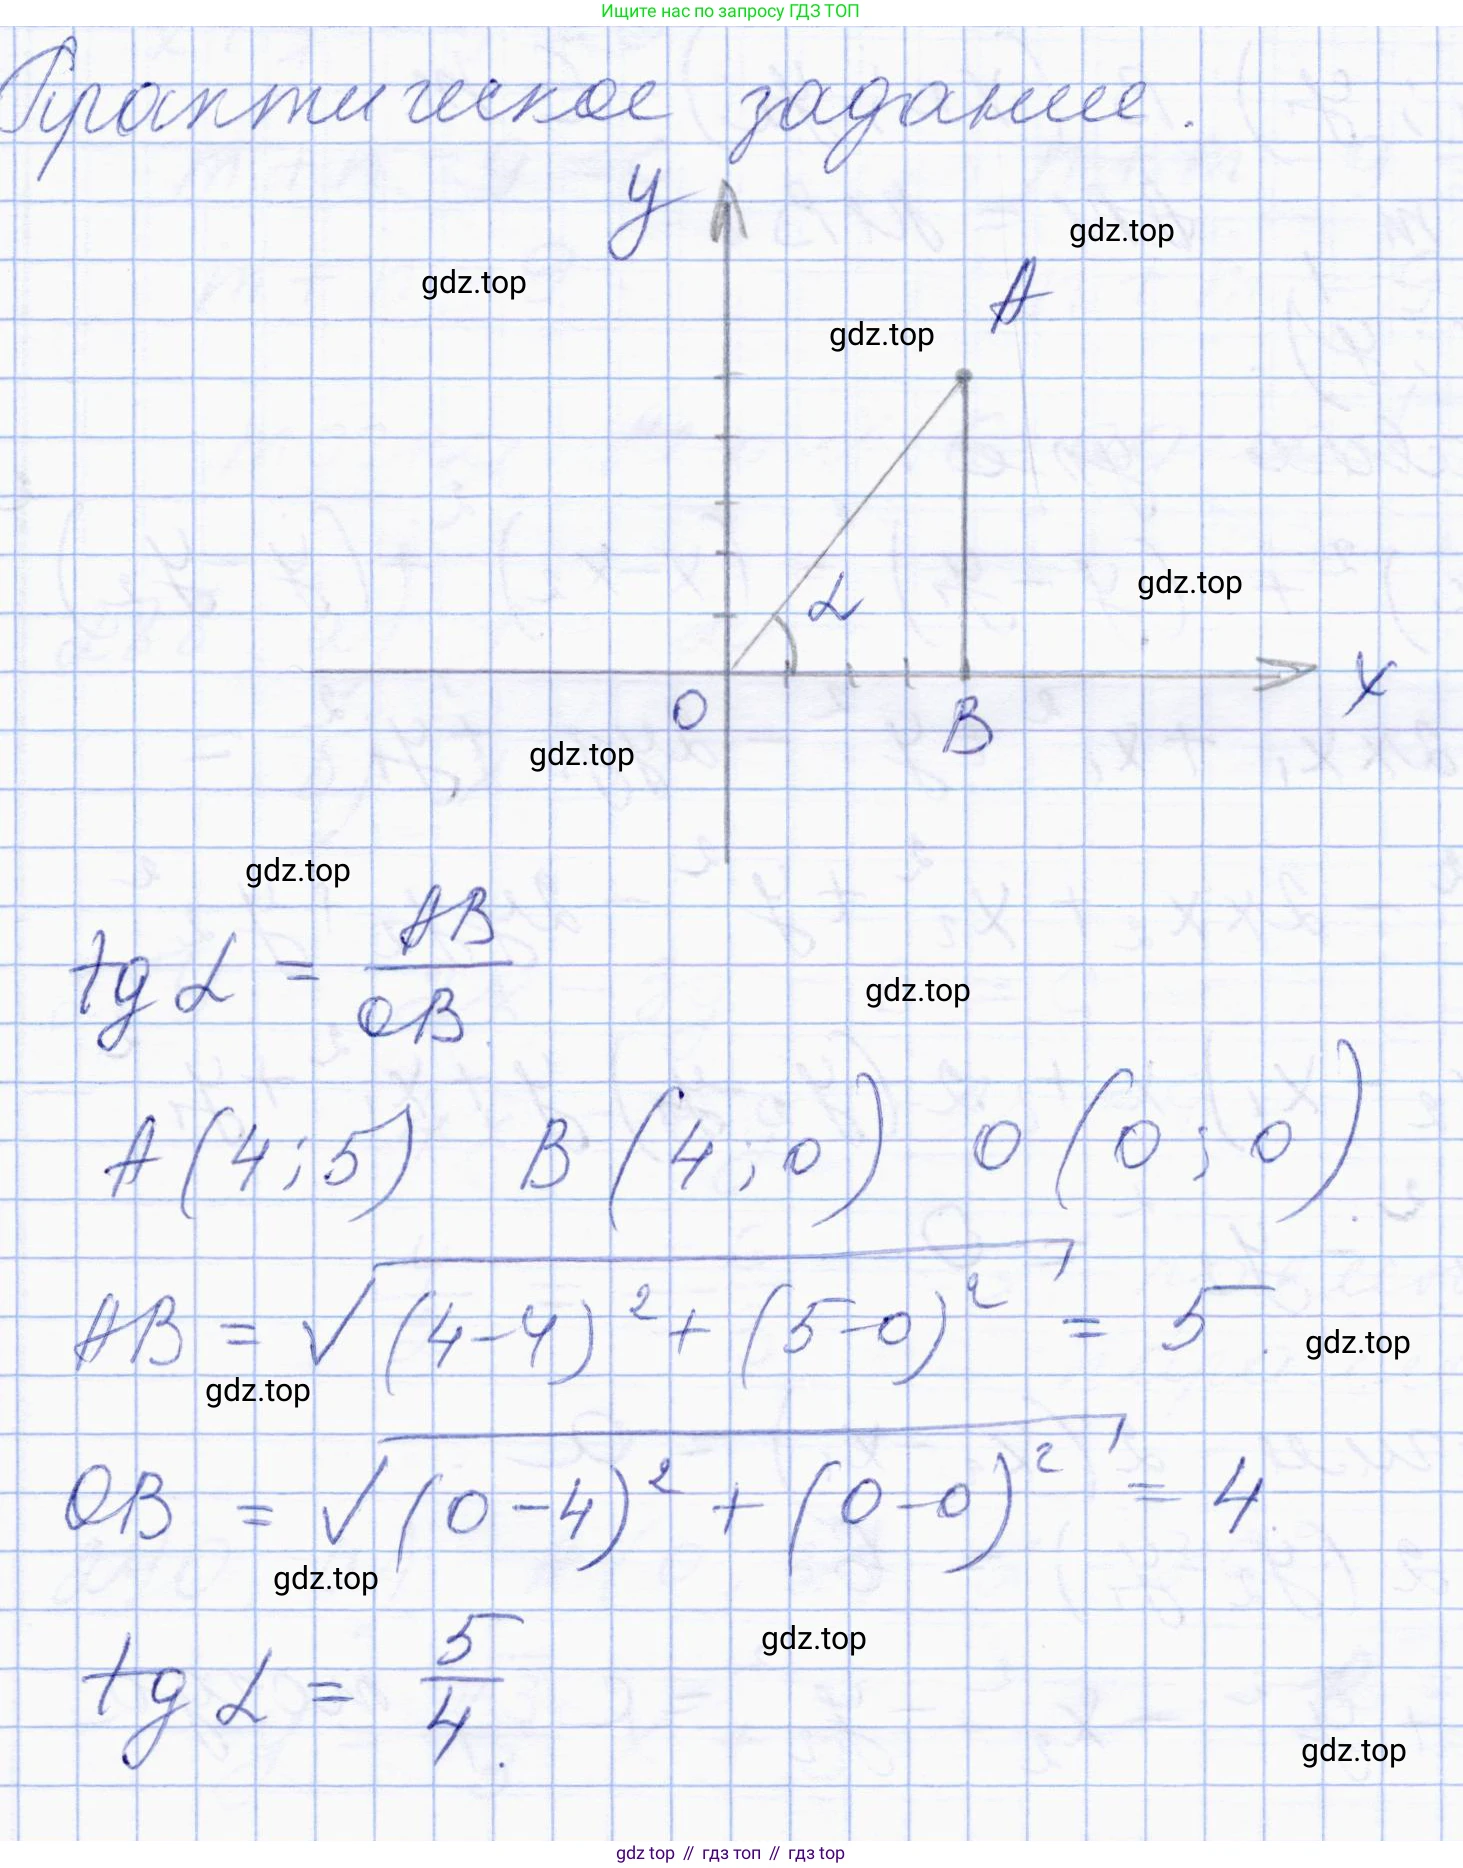 Ищите нас по запросу ГДЗ ТОП
Практическое задание.
y
gdz.top
A
gdz.top
gdz.top
α
gdz.top
O
B
x
gdz.top
gdz.top
tg α = AB/OB.
gdz.top
A(4;5) B(4;0) O(0;0).
AB = √((4-4)²+(5-0)²) = 5.
gdz.top
gdz.top
OB = √((0-4)²+(0-0)²) = 4.
gdz.top
gdz.top
tg α = 5/4.
gdz.top
gdz top // гдз топ // гдз top